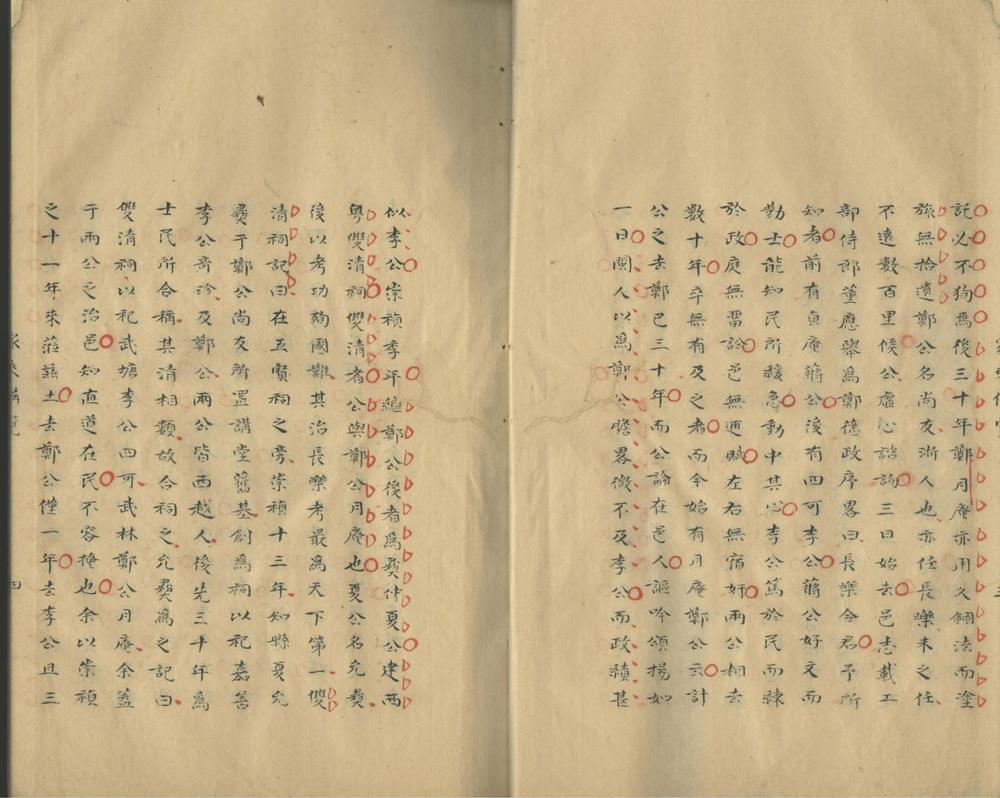 託必不狥爲後三十年鄭月庵亦用久錮法而塗
旅無拾遺鄭公名尚友浙人也亦任長樂未之任
不遠數百里候公虛心諮詢三日始去邑志載工
部侍郎董應舉爲鄭德政序畧曰長樂令君予所
知者前有貞庵蔣公後有四可李公蔣公好文而
勤士能知民所緩急動中其心李公篤於民而練
於政庭無畱訟邑無逋賦左右無宿奸兩公相去
數十年卒無有及之者而今始有月庵鄭公云計
公之去鄭已三十年而公論在邑人謳吟頌揚如
一日閩人以爲鄭公膽畧微不及李公而政績甚
似李公崇禎季年繼鄭公後者爲㢞仲夏公建西
粤雙清祠雙清者公與鄭公月庵也夏公名允彝
後以考功殉國難其治長樂考最爲天下第一雙
清祠記曰在五賢祠之旁崇禎十三年知縣夏允
彝于鄭公尚友所置講堂舊基創爲祠以祀嘉善
李公及鄭公兩公皆西越人後先三十年爲
士民所合稱其清相類故合祠之允彝爲之記曰
雙清祠以祀武塘李公四可武林鄭公月庵余蓋
于兩公之治邑知直道在民不容掩也余以崇禎
之十一年來蒞茲土去鄭公僅一年去李公且三